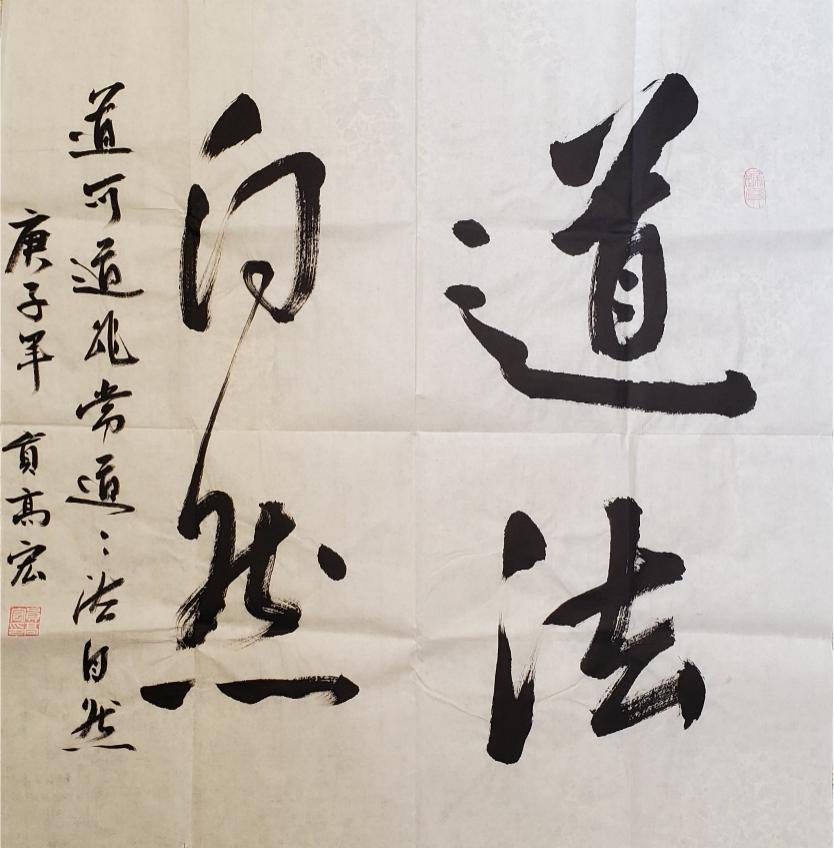 道法
自然
道可道非常道〻法自然
庚子年 高宏